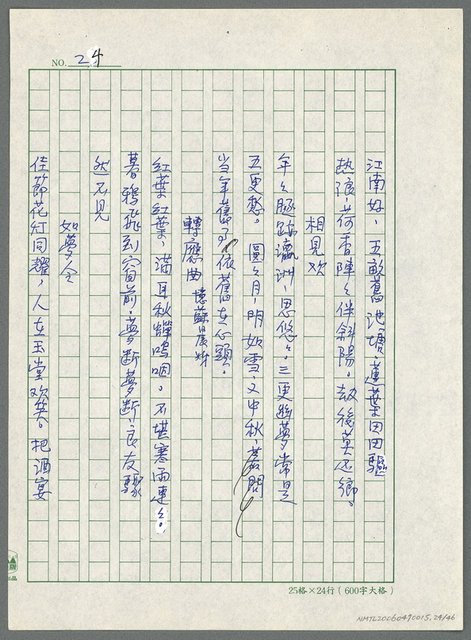 NO. 24
江南好，五畝舊池塘，蓮葉田田驅
熱浪，荷香陣々伴斜陽，劫後莫還鄉。
相見欢
年々隨跡瀛洲，思悠々。三更幽夢，常是
五更愁。圓々月，明如雪，又中秋，若問
当年舊事，依舊在心頭。
轉應曲 憶蘇晨妹
紅葉，紅葉，满耳秋蟬鳴咽。不堪寒雨連々，
暮鴉飛到窗前。夢断，夢断，良友
然不見
如夢令
佳節花紅同耀，人在玉堂欢笑。把酒宴
25格×24行（600字大格）
NMTL20060490015, 24/46